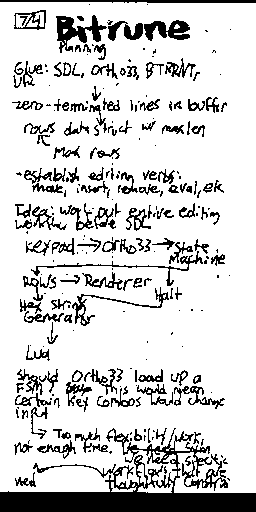 7/4 Bitrune
Planning
Glue: SDL, Ortho33, BTPRNT,
zero-terminated lines in buffer
rows data struct w/ maxlen
Max rows
-establish editing verbs:
move, insert, remove, eval, etc
Idea: work out entire editing
workflow before SDL
keypad → Ortho33 → State
Machine
Rows → Renderer
Halt
Hex String
Generator
Lua
Should Ortho33 load up a
FSM? This would mean
certain key combos would change
input
Too much flexibility/work,
not enough time. We need
We need specific
workflows that are
thoughtfully